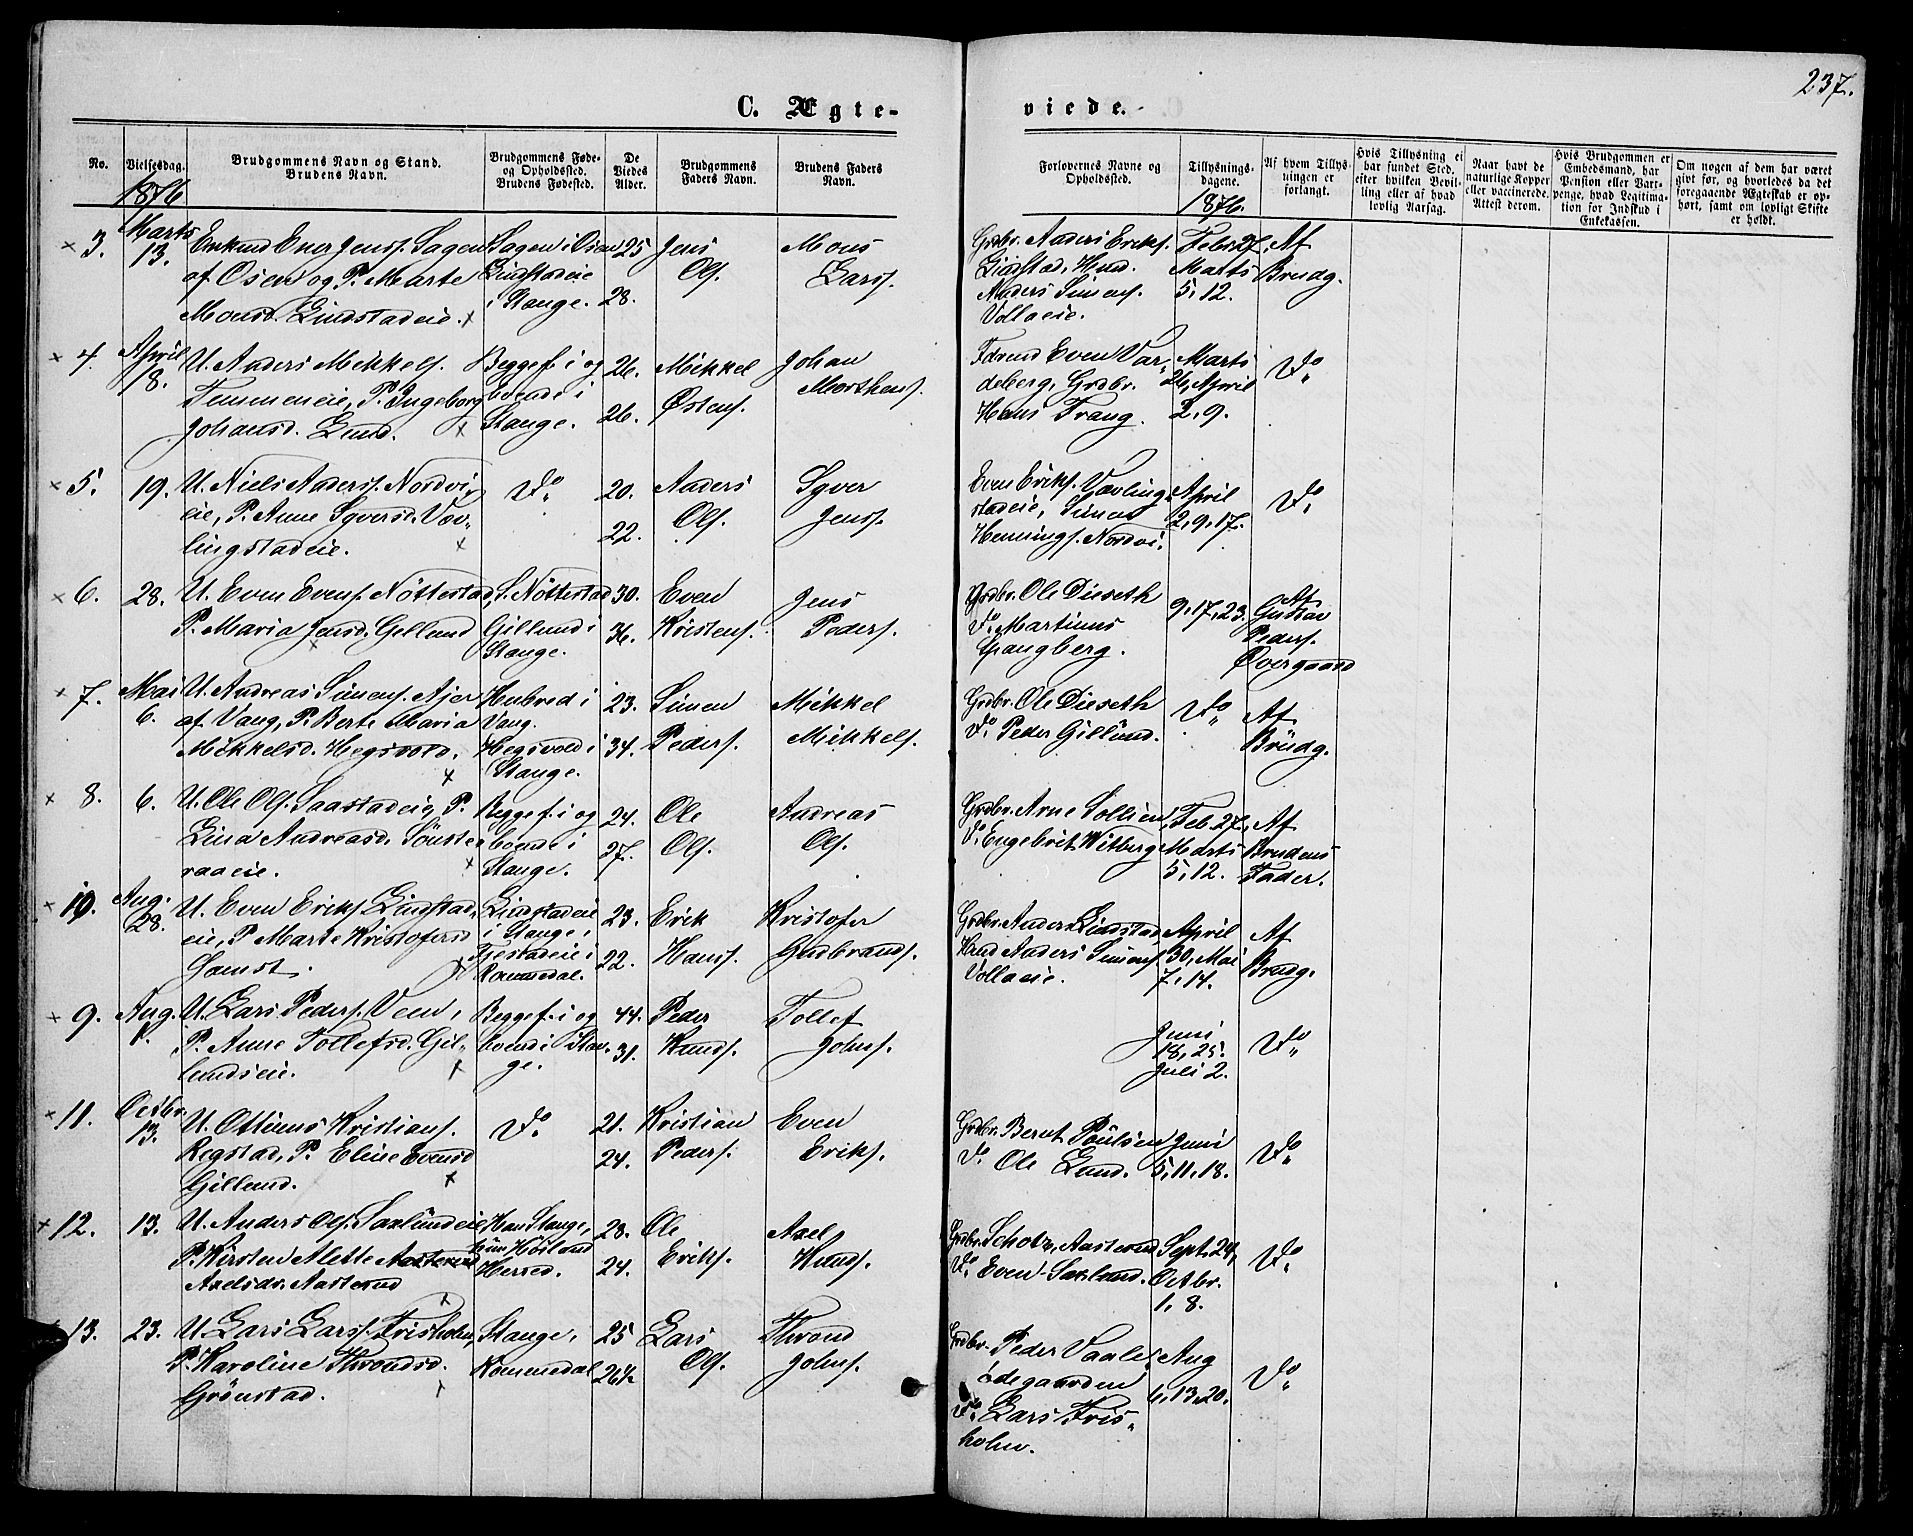 237.
C. Ægte-
viede.
No.
Vielsesdag.
Brudgommens Navn og Stand.
Brudens Navn.
Brudgommens Føde-
og Opholdssted.
Brudens Fødested.
De
Viedes
Alder.
Brudgommens
Faders Navn.
Brudens Faders
Navn.
Forlovernes Navne og
Opholdssted.
Tillysnings-
dagene.
Af hvem Tillys-
ningen er
forlangt.
Hvis Tillysning ei
har fundet Sted,
efter hvilken Bevil-
ling eller af hvad
lovlig Aarsag.
Naar havt de
naturlige Kopper
eller vaccinerede.
Attest derom.
Hvis Brudgommen er
Embedsmand, har
Pension eller Vart-
penge, hvad Legitima-
tion for Indskud i
Enkekassen.
Om nogen af dem har været
gift før, og hvorledes da det
foregaaende Ægteskab er op-
hørt, samt om lovligt Skifte
er holdt.
1876
1876.
3.
Marts
13.
Enkemd Ener Jenss. Sagen
af Osen og P. Marte
Monsd. Lindstadeie.
Sagen i Osen
Lindstadeie
i Stange.
25
28.
Jens
Ols.
Mons
Larss.
Grdbr. Anders Eriks.
Lindstad, Hmd.
Anders Simens.
Vollaeie.
Febr 27,
Marts
5, 12.
Af
Brudg.
4.
April
18.
U. Anders Mikkels.
Femmeneie, P. Ingeborg
Johansd. Lund.
Begge f. i og
boende i
Stange.
26.
26.
Mikkel
Østens.
Johan
Morthens.
Fdrend Even Var-
deberg, Grdbr.
Hans Frang.
Marts
26, April
2, 9.
Do
5.
19.
U. Niels Anderss. Nordvi-
eie, P. Anne Syversd. Vov-
lingstadeie.
Do
20.
22.
Anders
Ols.
Syver
Jenss.
Even Eriks. Vovling-
stadeie, Simen
Hennings. Nordvi.
April
2, 9, 17.
Do
6.
28.
U. Even Evens. Nöttestad,
P. Maria Jensd. Gillund
S. Nöttestad
Gillund i
Stange.
30.
36.
Even
Kristens.
Jens
Peders.
Grdbr. Ole Dieseth
Do Martinus
Spangberg.
9, 17, 23.
Af
Gustav
Peders.
Overgaard
7.
Mai
6.
U. Andreas Simens. Ajer
af Vang, P. Berte Maria
Mikkelsd. Hegsvold.
Hubred i
Vang.
Hegsvold i
Stange.
23.
34.
Simen
Peders.
Mikkel
Mikkels.
Grdbr. Ole Dieseth
Do Peder Gillund.
Do
Af
Brudg.
8.
6.
U. Ole Ols. Saastadeie, P.
Lina Andreasd. Sönste-
raaeie.
Begge f. i og
boende i
Stange.
24.
27.
Ole
Ols.
Andreas
Ols.
Grdbr. Arne Sollien,
Do Engebrit Vitberg
Feb. 27,
Marts
5, 12.
Af
Brudens
Fader.
10.
Aug.
28.
U. Even Eriks. Lindstad-
eie, P. Marte Kristofersd
Lindstadeie
i Stange,
Fjestadeie i
Rommedal.
23.
22.
Erik
Hanss.
Kristofer
Gudbrands.
Grdbr. Anders Lindstad
Hmd Anders Simens.
Vollaeie.
April
30, Mai
7, 14.
Af
Brudg.
9.
Aug.
U. Lars Peders. Veen,
P. Anne Tollefsd. Gil-
lundseie.
Begge f. i og
boende i Stan-
ge.
44.
31.
Peder
Knuds.
Tollef
Johns.
Juni
18, 25.
Juli 2.
Do
11.
Octbr.
13.
U. Ottinus Kristians.
Ragstad, P. Eline Evensd
Gillund.
Do
21.
24.
Kristian
Peders.
Even
Eriks.
Grdbr. Bernt Poulsen
Do Ole Lund.
Juni
5, 11, 18.
Do
12.
13.
U. Anders Ols. Saxlundeie
P. Kirsten Alette
Axelsdr. Aasterud
Han Stange,
hun Höiland
Herred.
28.
24.
Ole
Eriks.
Axel
Knuds.
Grdbr. Schotz, Aasterud
Do Even Saxlund.
Sept. 24,
Octbr.
1, 8.
Do
13.
23.
U. Lars Larss. Frisholm,
P. Karoline Throndsd.
Grönstad.
Stange,
Rommedal
25
26½
Lars
Ols.
Thrond
Johns.
Grdbr. Peder Vaale-
ödegaarden
Do Lars Fris-
holm.
Aug
6, 13, 20.
Do